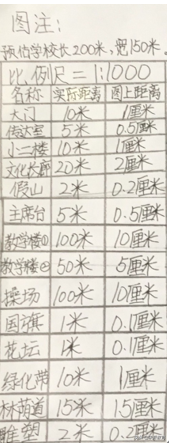 图注:
预估学校长200米,宽150米.
比例尺=1:1000
名称 实际距离 图上距离
大门 10米 1厘米
传达室 5米 0.5厘米
小二楼 10米 1厘米
文化长廊 20米 2厘米
假山 2米 0.2厘米
主席台 5米 0.5厘米
教学楼① 100米 10厘米
教学楼② 50米 5厘米
操场 100米 10厘米
国旗 1米 0.1厘米
花坛 1米 0.1厘米
绿化带 10米 1厘米
林荫道 15米 1.5厘米
雕塑 2米 0.2厘米